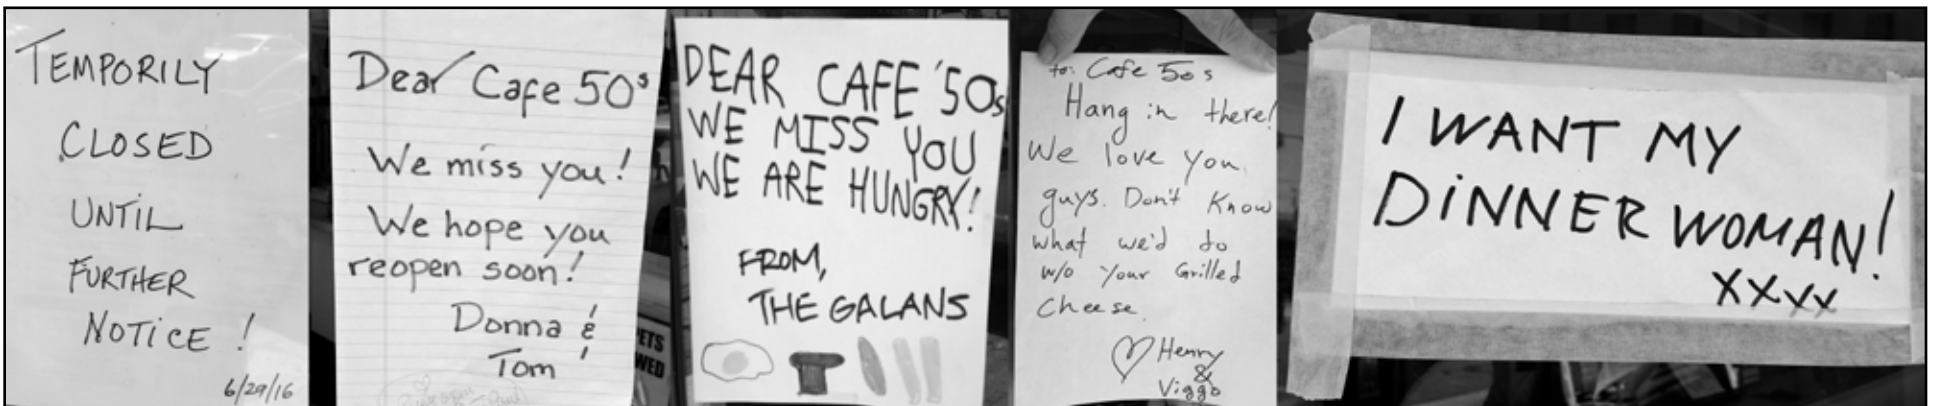 TEMPORILY
CLOSED
UNTIL
FURTHER
NOTICE!
6/29/16
Dear Cafe 50s
We miss you!
We hope you
reopen soon!
Donna &
Tom
ETS
WED
DEAR CAFE '50s
WE MISS YOU
WE ARE HUNGRY!
FROM,
THE GALANS
to: Cafe 50s
Hang in there!
We love you
guys. Don't Know
what we'd do
w/o Your Grilled
Cheese.
Henry
&
Viggo
I WANT MY
DiNNER WOMAN!
xxxx